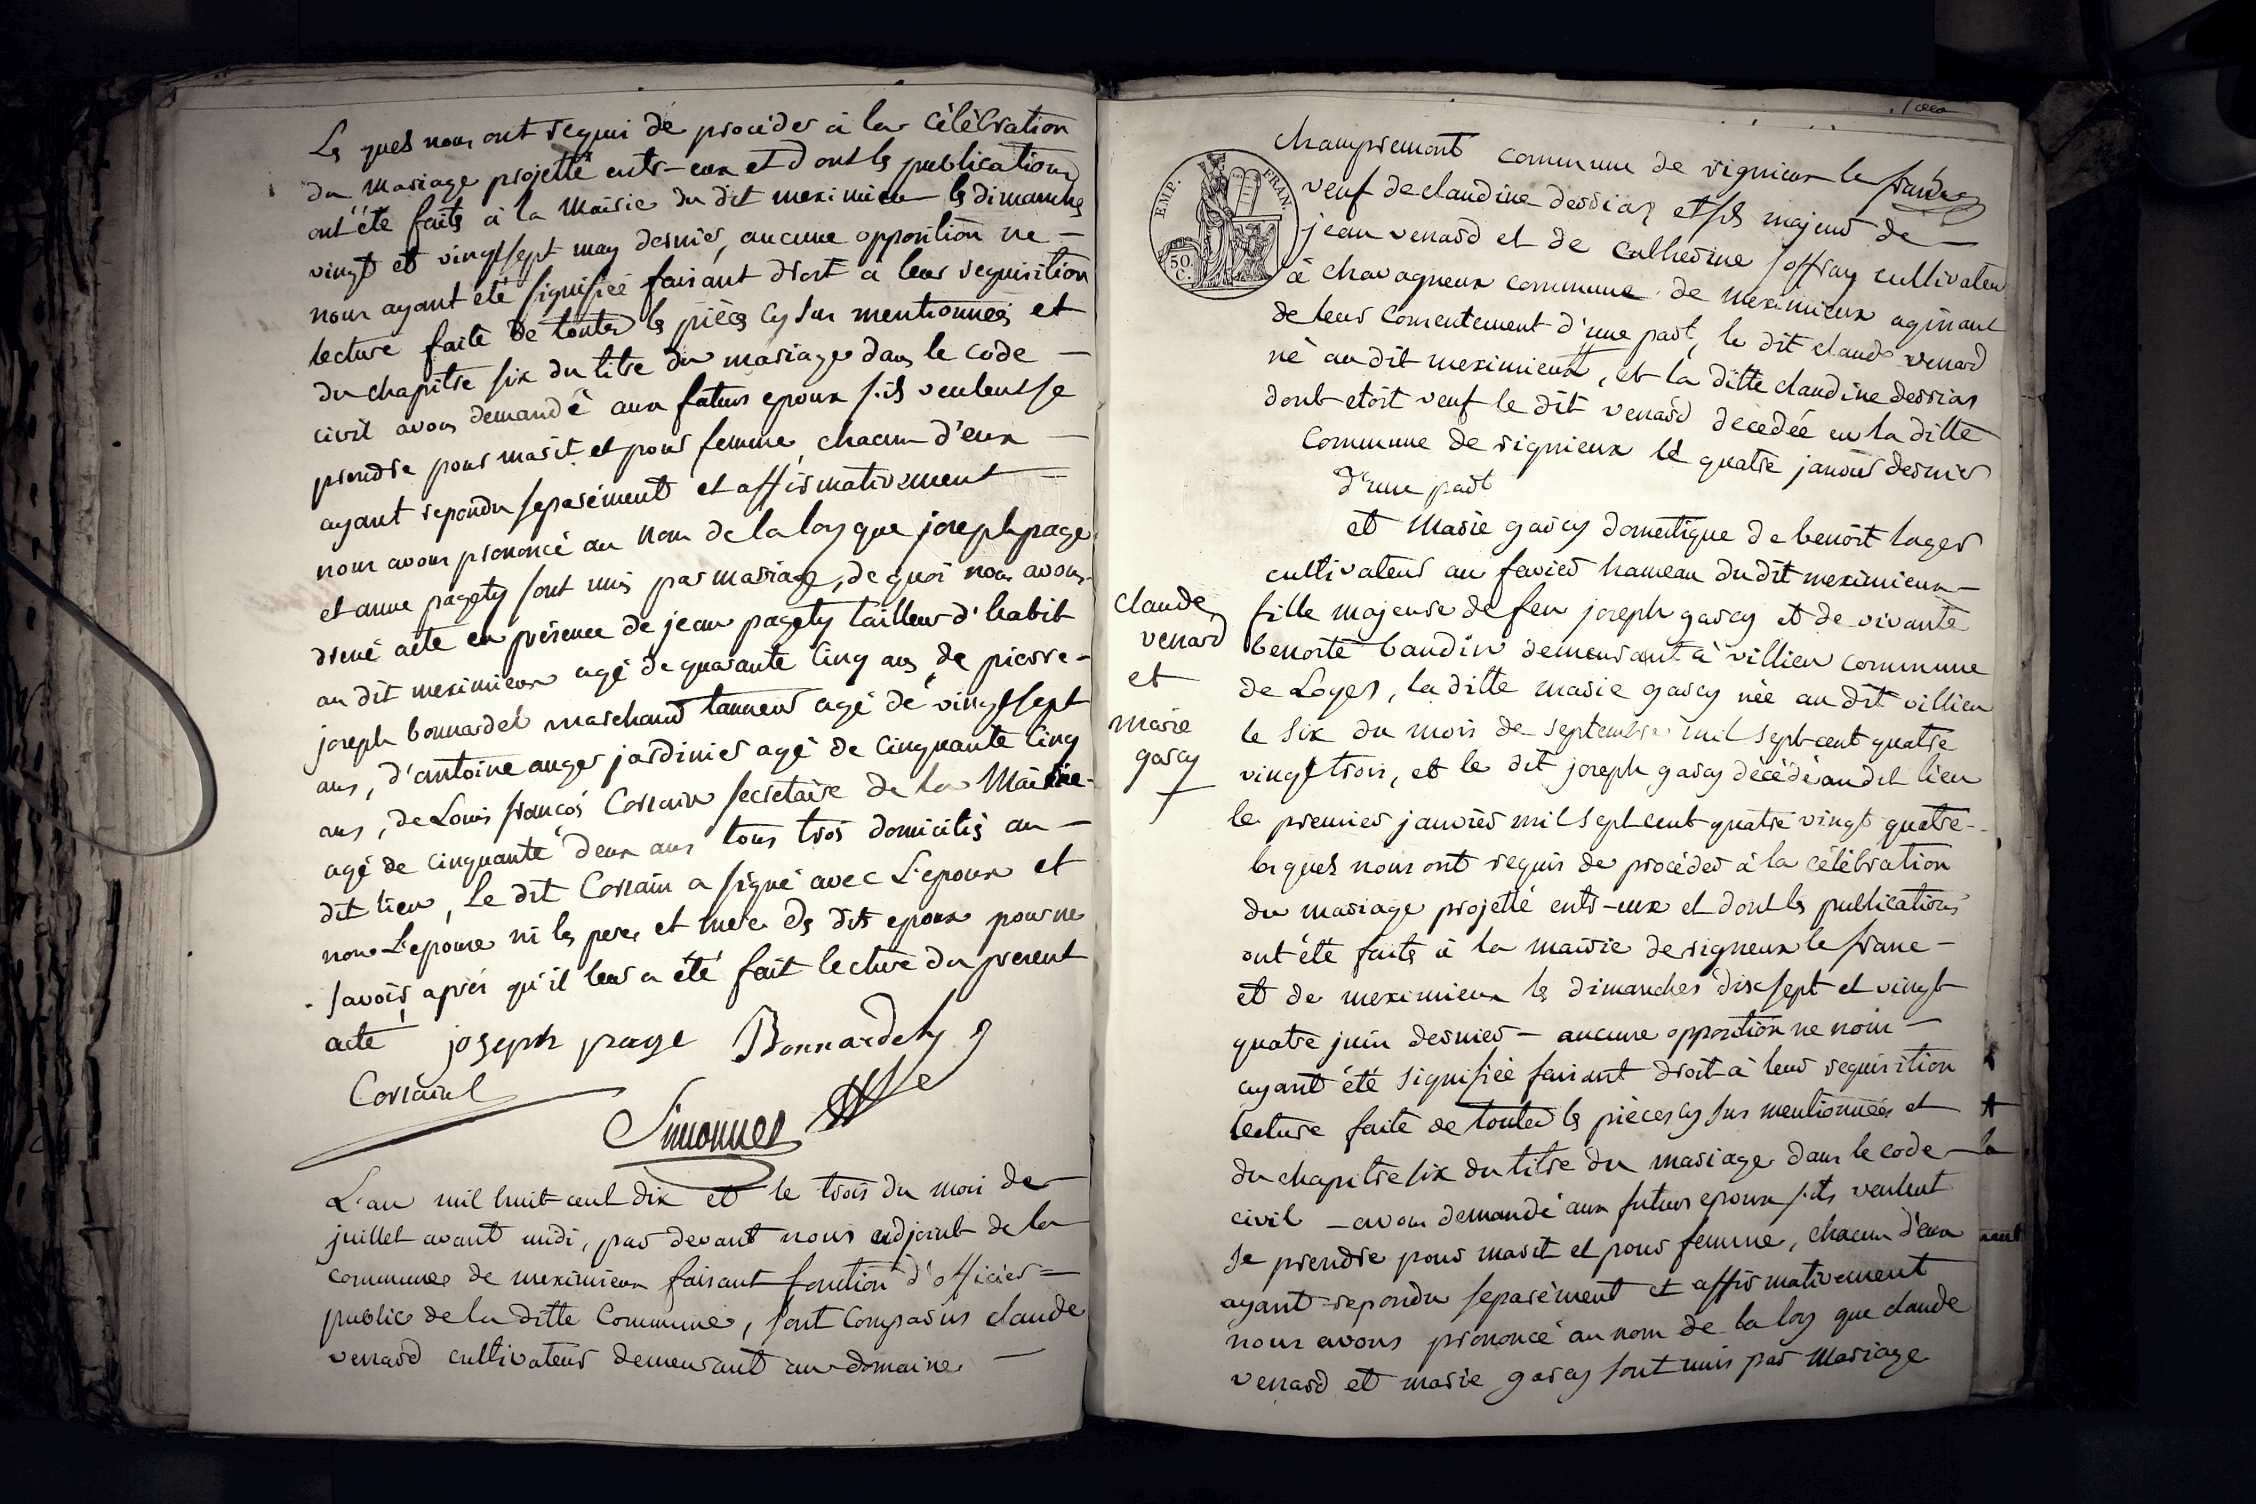 Les quels nous ont requi de procéder à la célébration
du mariage projetté entr-eux et dont les publications
ont été faites à la Mairie du dit meximieux les dimanches
vingt et vingt sept may dernier, aucune opposition ne —
nous ayant été signifiée faisant droit à leur requisition
lecture faite de toutes les pièces cy sus mentionnées et
du chapitre six du titre du mariage dans le code —
civil avons demandé aux futurs epoux s'ils veulent se
prendre pour marit et pour femme, chacun d'eux —
ayant repondu separément et affirmativement —
nous avons prononcé au nom de la loy que joseph page
et anne pagety sont unis par mariage, de quoi nous avons
dressé acte en présence de jean pagety tailleur d'habit
au dit meximieux agé de quarante cinq ans, de pierre-
joseph bonnardel marchand tanneur agé de vingt sept
ans, d'antoine auger jardinier agé de cinquante cinq
ans, de Louis françois Corsain secretaire de la Mairie-
agé de cinquante deux ans tous trois domiciliés au —
dit lieu, Le dit Corsain a signé avec L'epoux et
non L'epouse ni les pere et mere des dits epoux pour ne
savoir, après qu'il leur a été fait lecture du present
acte joseph page Bonnardel
Corsain
Simonnet
L'an mil huit cent dix et le trois du mois de —
juillet avant midi, par devant nous adjoint de la
commune de meximieux faisant fonction d'officier =
public de la ditte Commune, sont Comparus claude
venard cultivateur demeurant au domaine —
champremont commune de rignieux le franc
EMP. FRAN.
50 C.
veuf de claudine dessias et fils majeur de —
jean venard et de catherine joffray cultivateur
à chavagneux commune de meximieux agissant
de leur consentement d'une part, le dit claude venard
né au dit meximieux, et la ditte claudine dessias
dont etoit veuf le dit venard decedée en la ditte
Commune de rignieux le quatre janvier dernier
d'une part
et Marie garcy domestique de benoit lager
cultivateur au favier hameau du dit meximieux —
fille majeure de feu joseph garcy et de vivante
benoite baudin demeurant à villieu commune
de Loyes, la ditte marie garcy née au dit villieu
le six du mois de septembre mil sept cent quatre
vingt trois, et le dit joseph garcy décédé au dit lieu
le premier janvier mil sept cent quatre vingt quatre -
claude
venard
et
marie
garcy
les quels nous ont requis de procéder à la célébration
du mariage projetté entr-eux et dont les publications
ont été faites à la mairie de rigneux le franc —
et de meximieux les dimanches dix sept et vingt
quatre juin dernier — aucune opposition ne nous —
ayant été signifiée faisant droit à leur requisition
lecture faite de toutes les pièces cy sus mentionnées et
du chapitre six du titre du mariage dans le code —
civil — avons demandé aux futurs epoux s'ils veulent
se prendre pour marit et pour femme, chacun d'eux
ayant repondu separément et affirmativement
nous avons prononcé au nom de la loy que claude
venard et marie garcy sont unis par Mariage